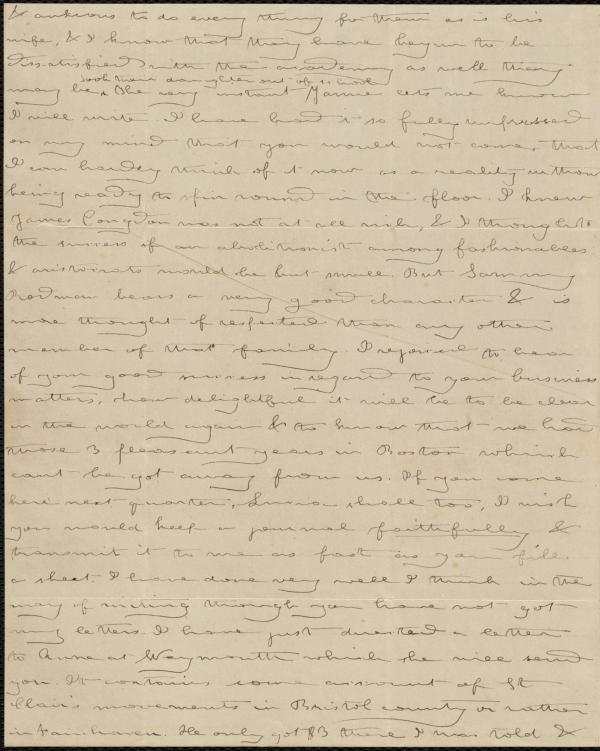 & anxious to do every thing for them as is his
wife, & I know that they have begun to be
dissatisfied with the academy as well they
took their daughter out of school
may be & the very instant Jamie lets me know
I will write. I have had it so fully impressed
on my mind that you would not come, that
I can hardly think of it now as a reality without
being ready to spin round in the floor. I knew
James Congdon was not at all rich, & I thought
the success of an abolitionist among fashionables
& aristocrats would be but small. But Sammy
Rodman bears a very good character & is
more thought of respected than any other
member of that family. I rejoiced to hear
of your good success in regard to your business
matters, how delightful it will be to be clear
in the world again & to know that we had
those 3 pleasant years in Boston which
cant be got away from us. If you come
here next quarter, Lucia shall too, I wish
you would keep a journal faithfully &
transmit it to me as fast as you fill
a sheet. I have done very well I think in the
way of writing through you have not got
my letters. I have just directed a letter
to Anne at Weymouth which she will send
you. It contains some account of St
Clair's movements in Bristol county or rather
in Fairhaven. He only got $3 there I was told &